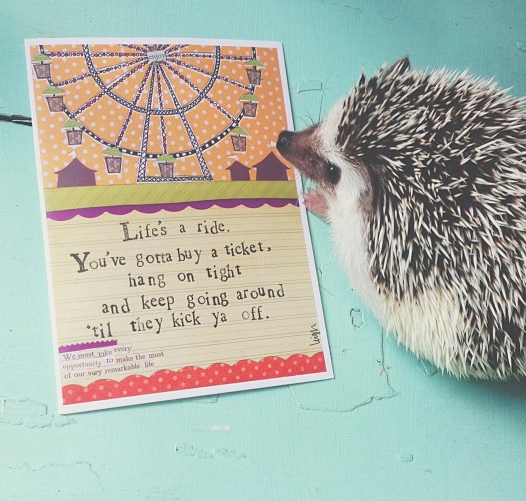 Life's a ride.
You've gotta buy a ticket,
hang on tight
and keep going around
'til they kick ya off.
We must take every
opportunity to make the most
of our very remarkable life